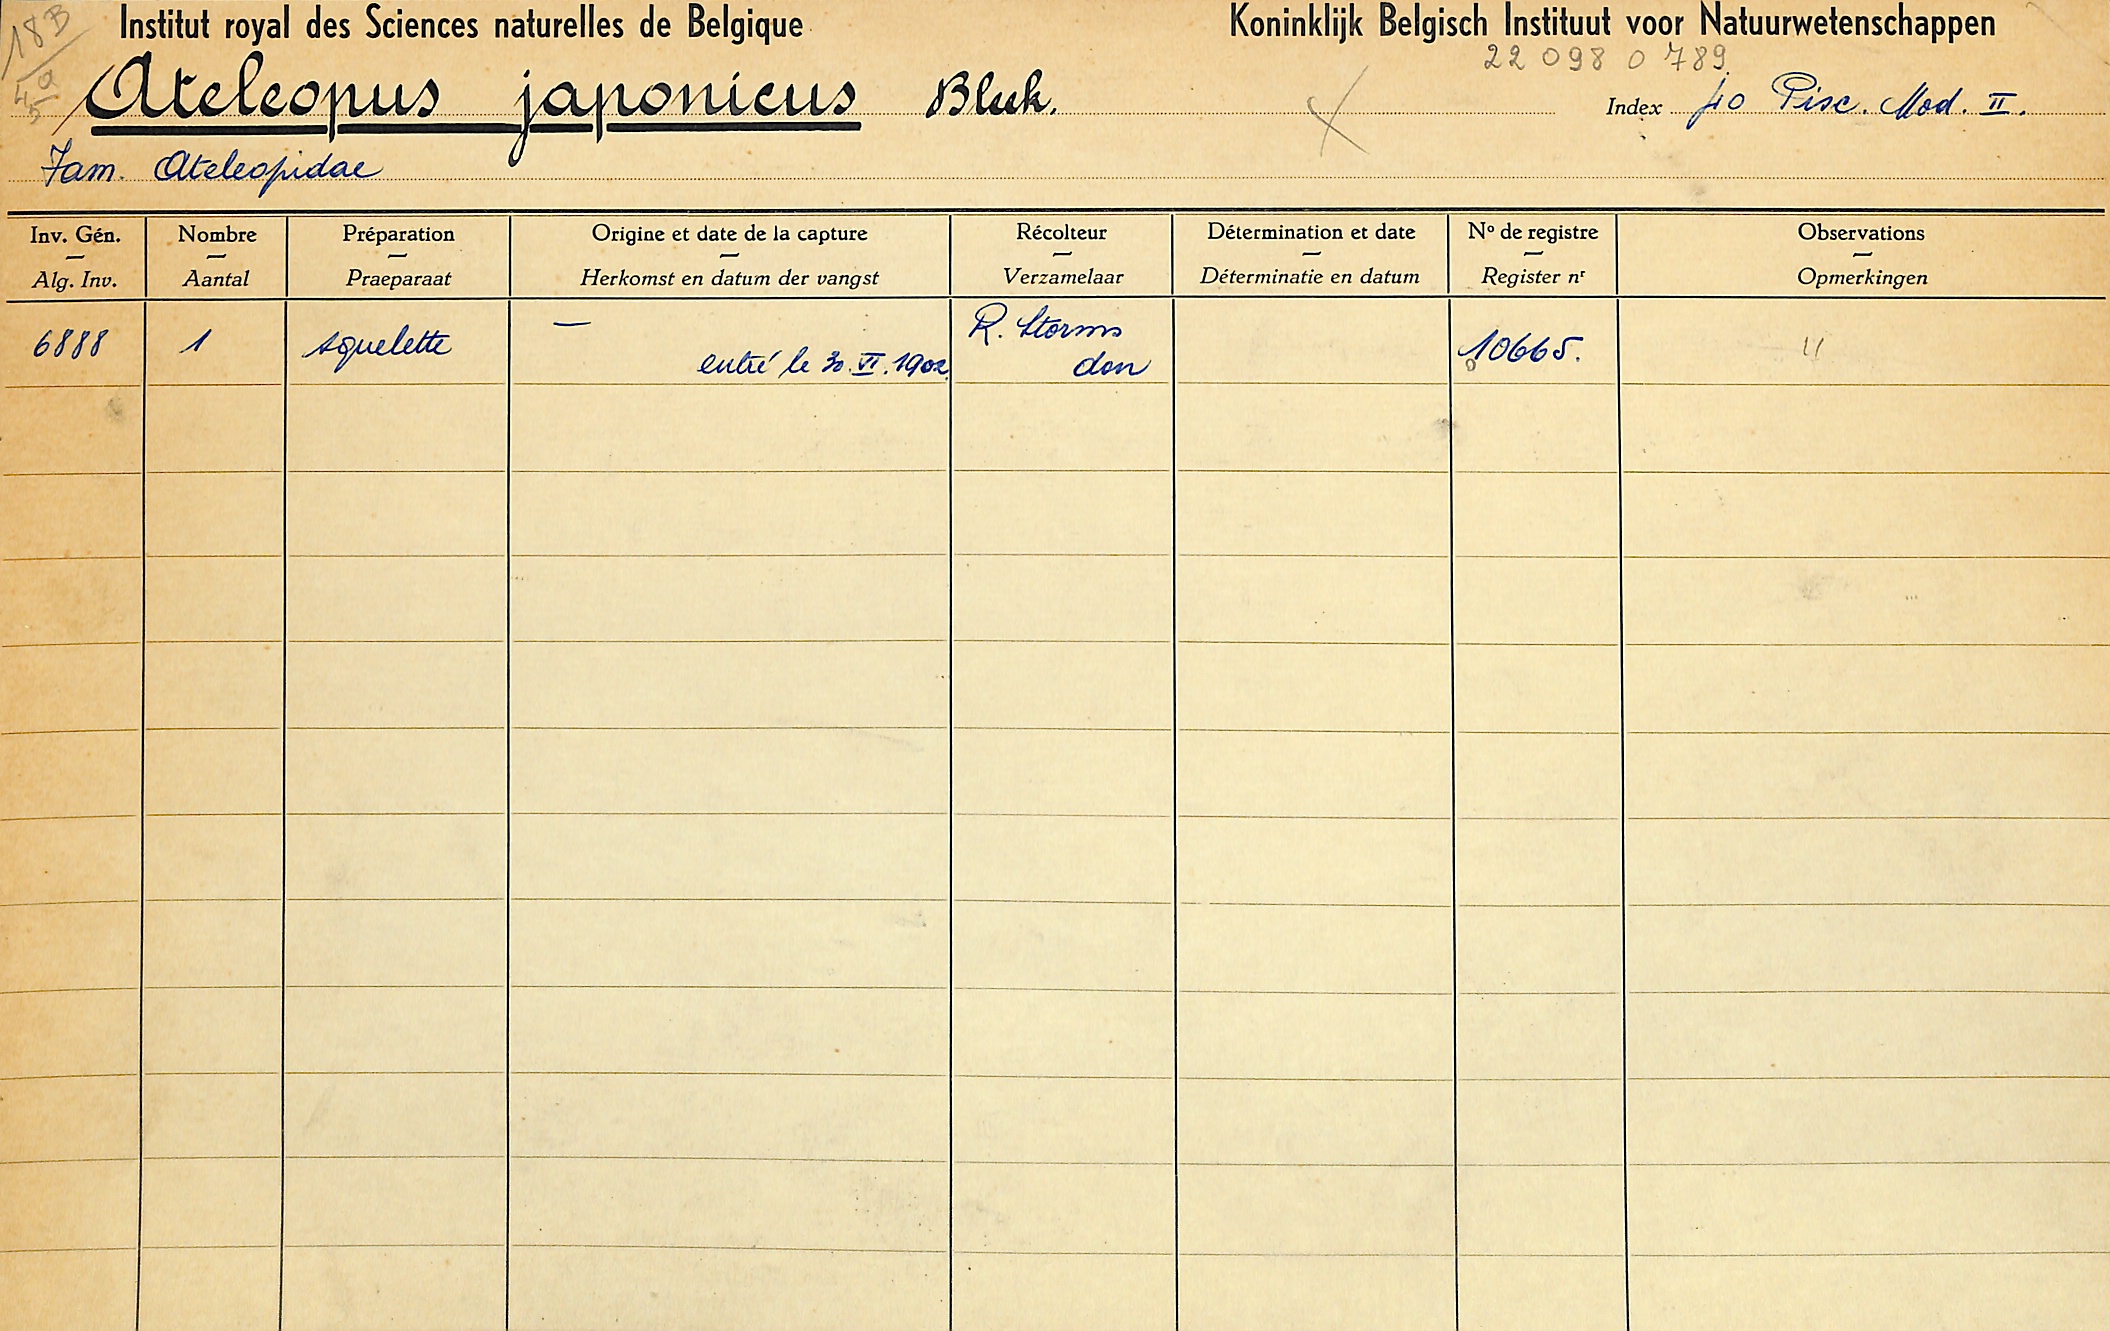 Institut royal des Sciences naturelles de Belgique
Koninklijk Belgisch Instituut voor Natuurwetenschappen
18B
45a
22 098 0 789
Ateleopus japonicus Bleek.
Index 40 Pisc. Mod. II.
Fam. Ateleopidae
Inv. Gén. Nombre Préparation Origine et date de la capture Récolteur Détermination et date Nº de registre Observations
Alg. Inv. Aantal Praeparaat Herkomst en datum der vangst Verzamelaar Déterminatie en datum Register nʳ Opmerkingen
6888 1 squelette — R. Storms 10665. "
entré le 30.VI.1902. don